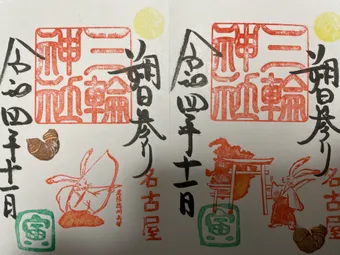 朔日参り
名古屋
三輪
神社
令和四年十一月
寅
朔日参り
名古屋
三輪
神社
令和四年十一月
寅